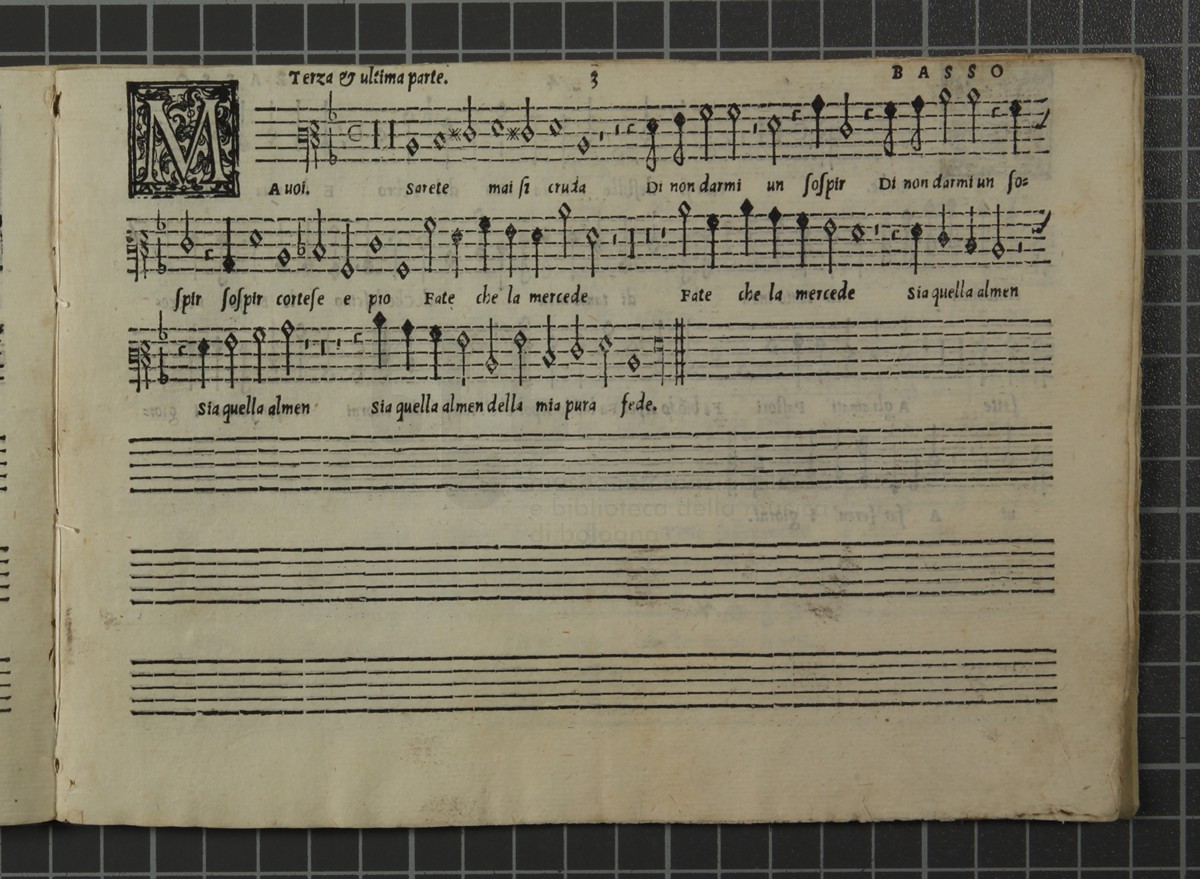 Terza & ultima parte. 3 BASSO
MA voi. Sarete mai sì cruda Di non darmi un ſoſpir Di non darmi un ſo=
ſpir ſoſpir corteſe e pio Fate che la mercede Fate che la mercede Sia quella almen
Sia quella almen Sia quella almen della mia pura fede.
e biblioteca della musica
di bologna